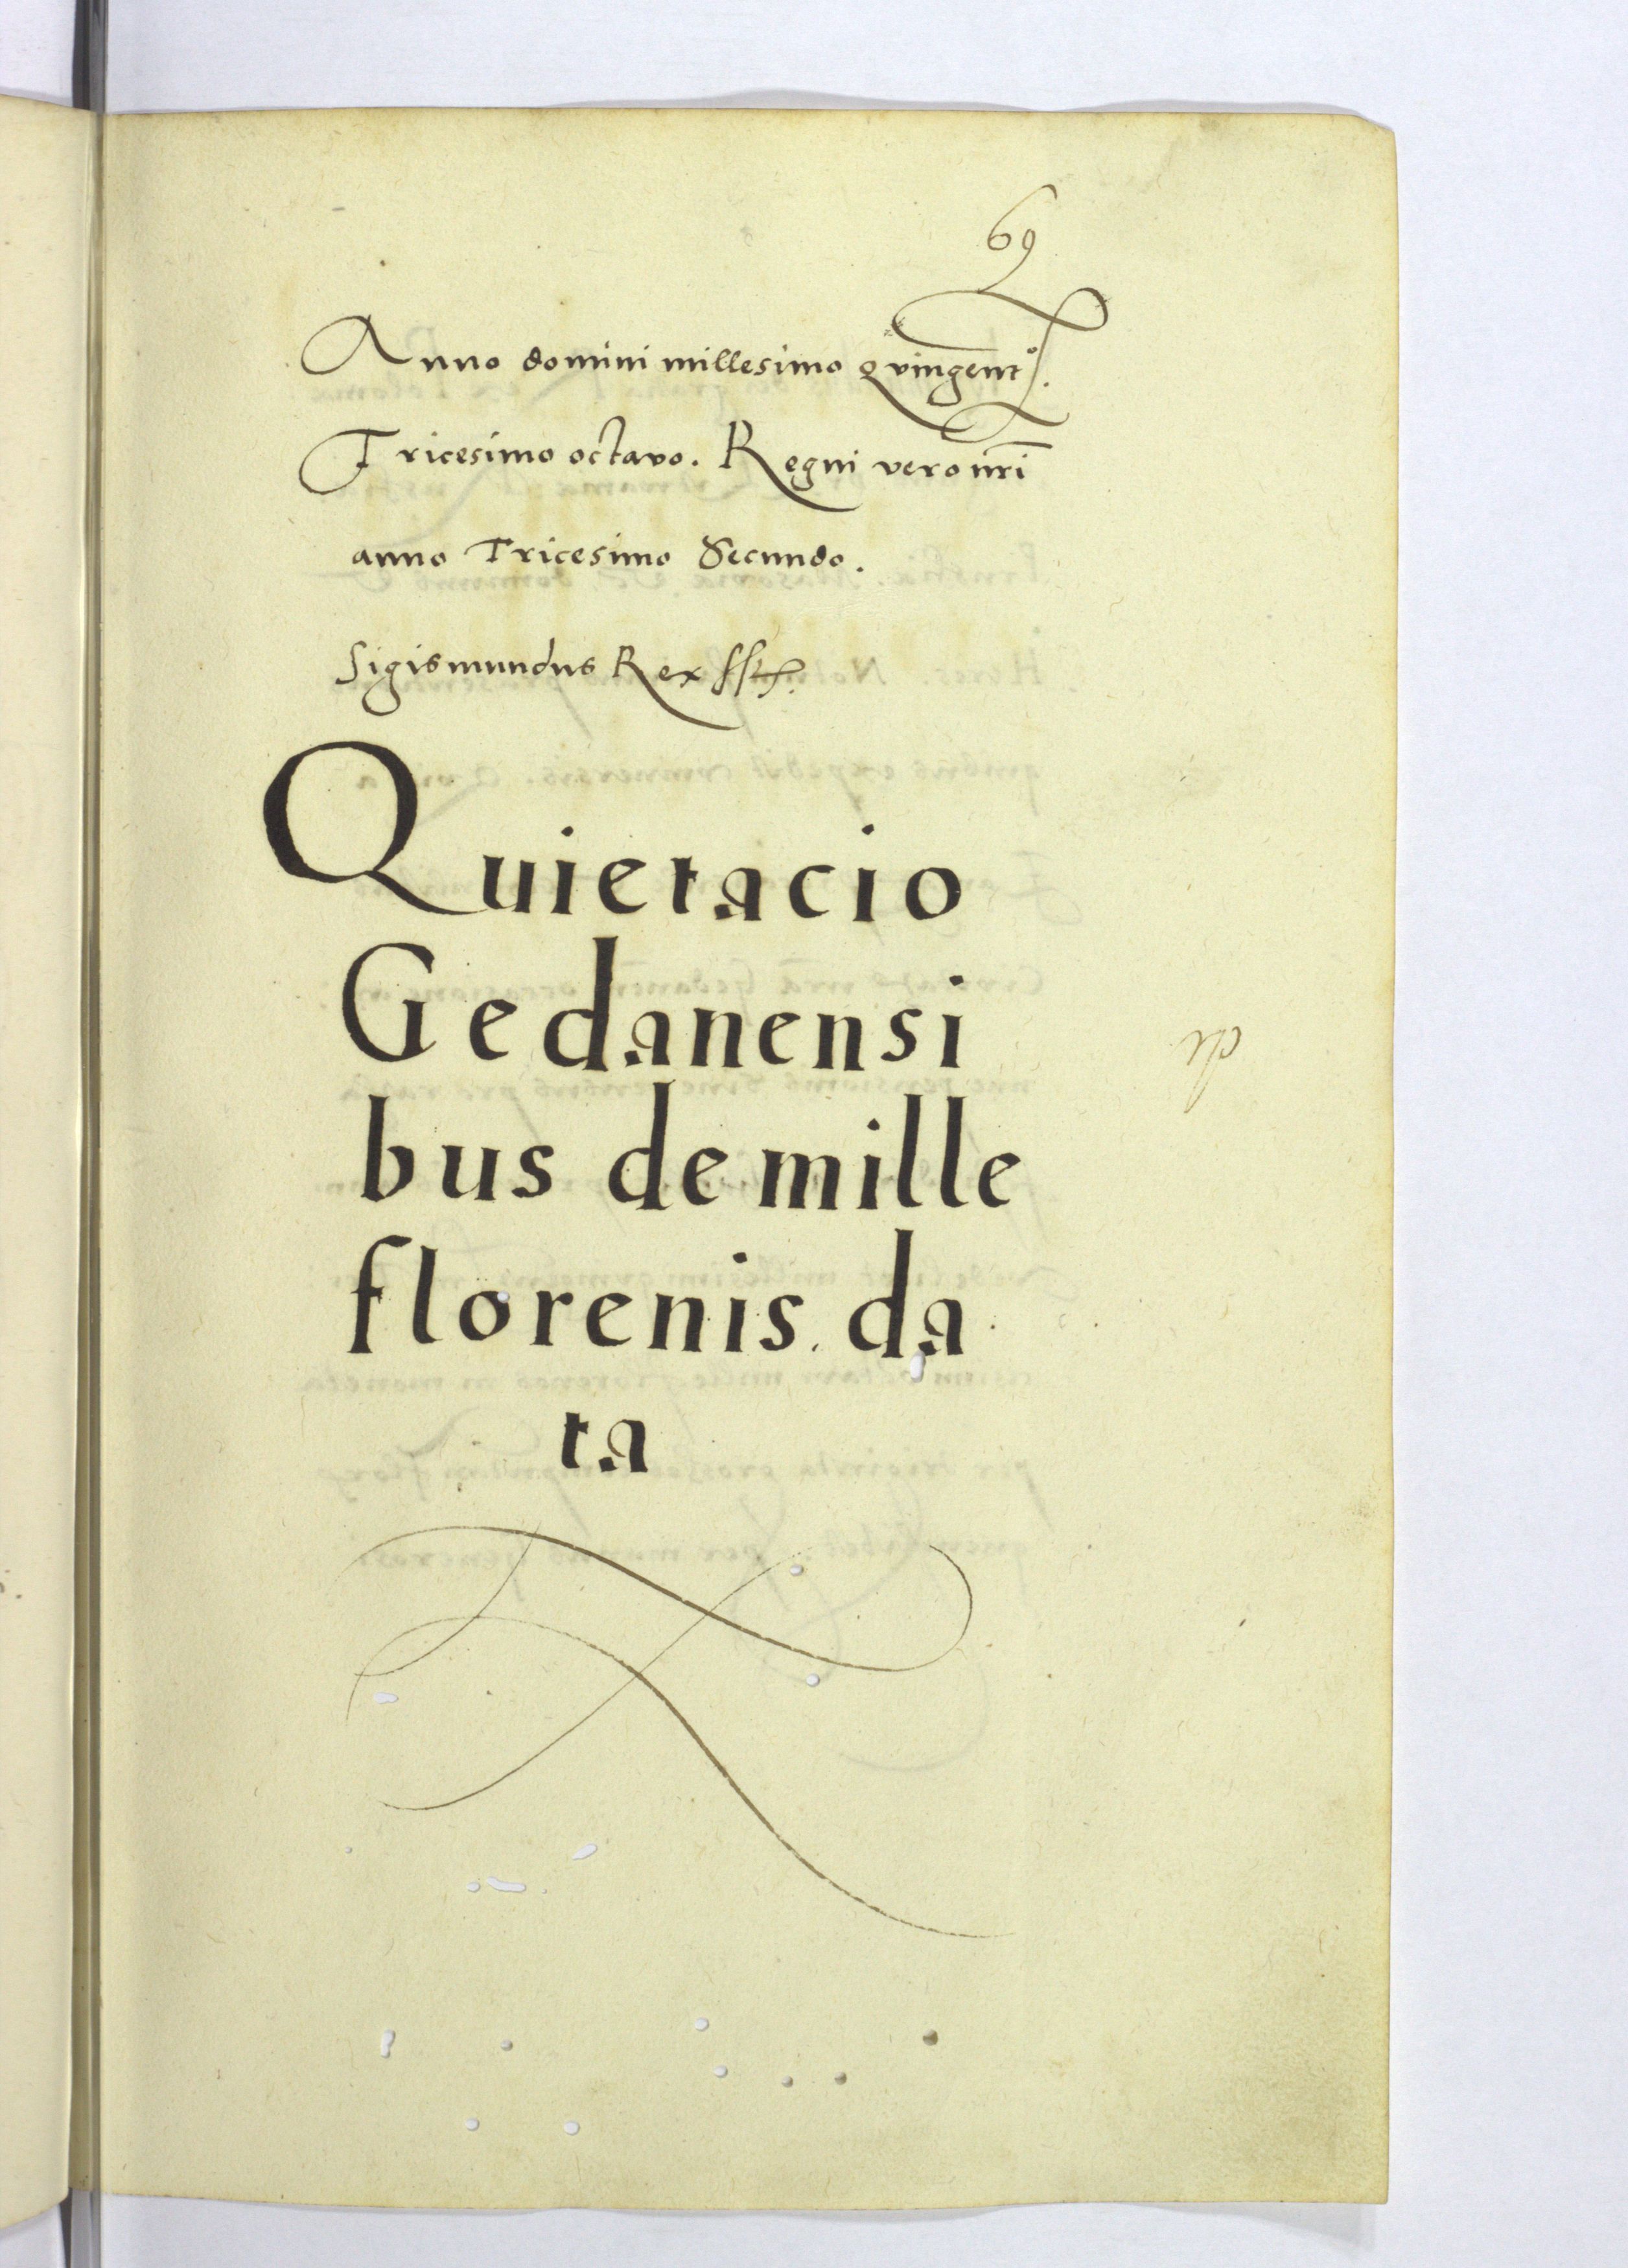 69
Anno domini millesimo qvingent°.
Tricesimo octavo. Regni vero nr̄i
anno Tricesimo Secundo.
Sigismundus Rex sst.
Quietacio
Gedanensi
bus de mille
florenis. da
ta